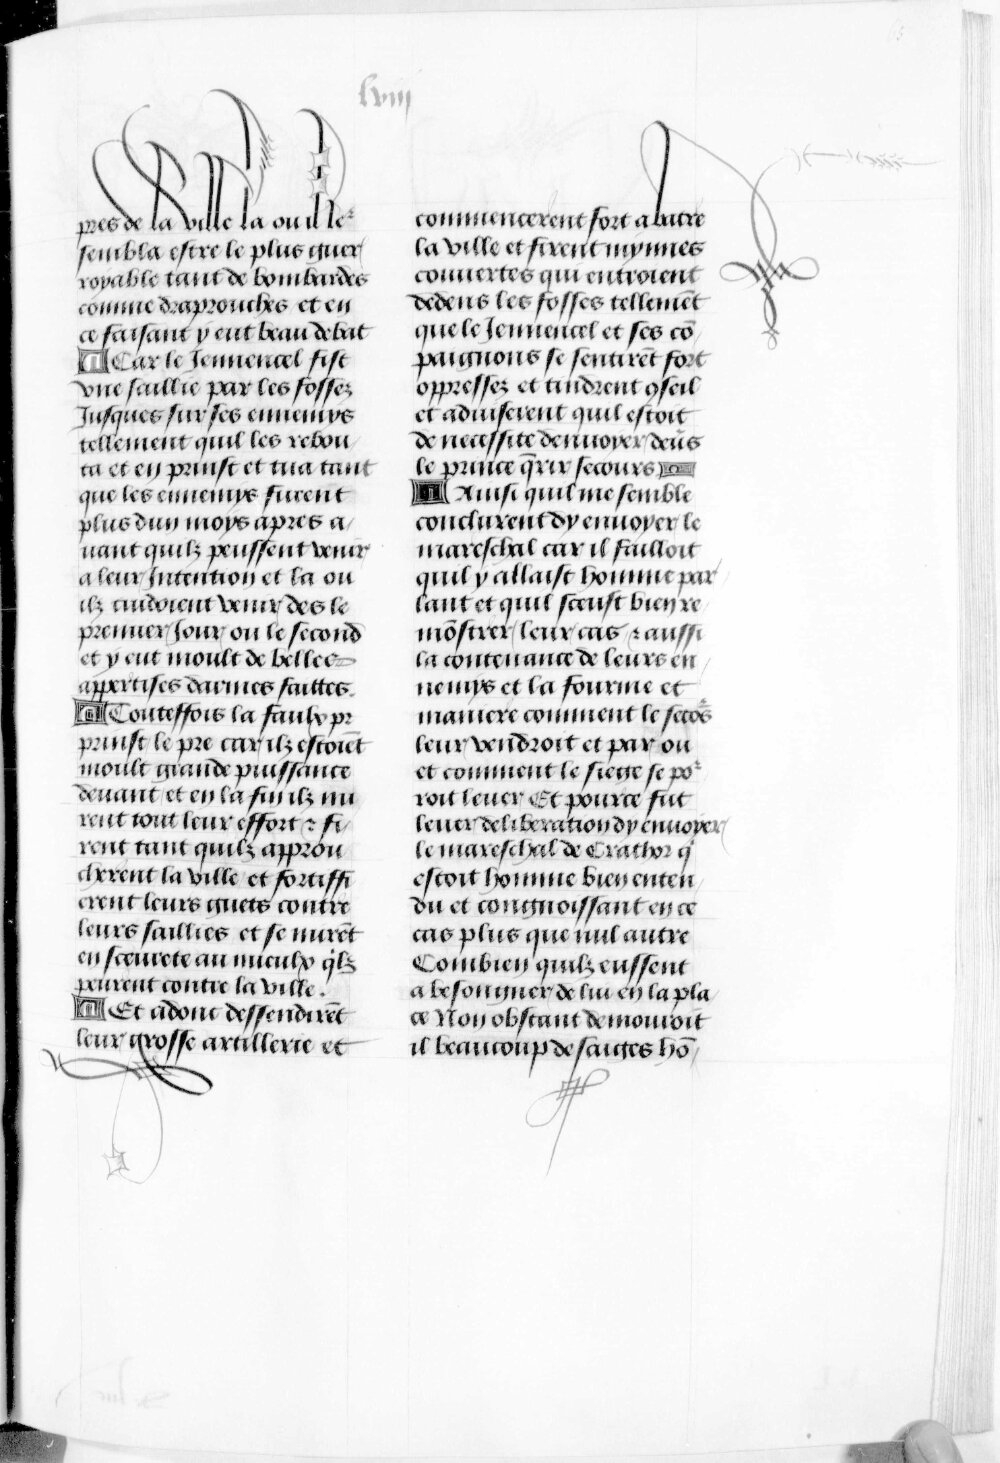 lviij
pres de la ville la ou il leʳ
sembla estre le plus guer
royable tant de bombardes
comme daprouches et en
ce faisant y eut beau debat
Car le Jennencel fist
vne saillie par les fossez
Jusques sur ses ennemys
tellement quil les rebou/
ta et en prinst et tua tant
que les ennemys furent
plus dun moys apres a/
uant quilz peussent venir
a leur Intention et la ou
ilz cuidoient venir des le
premier Jour ou le second
et y eut moult de belles
appertises darmes faittes.
Touteffois la faulx pr
prinst le pre car ilz estoiēt
moult grande puissance
deuant et en la fin ilz mi
rent tout leur effort ⁊ fi/
rent tant quilz approu
cherent la ville et fortiffi
erent leurs guets contre
leurs saillies et se mirēt
en sceurete au mieulx q̓lz
peurent contre la ville.
Et adont dessendirēt
leur grosse artillerie et
commencerent fort a batre
la ville et firent mynnes
couuertes qui entroient
dedens les fosses tellemēt
que le Jennencel et ses cō/
paignons se sentirēt fort
oppressez et tindrent ꝯseil
et aduiserent quil estoit
de necessite denuoyer deūs
le prince q̄rir secours
Ainsi quil me semble
conclurent dy enuoyer le
mareschal car il failloit
quil y allaist homme par/
lant et quil sceust bien re/
mōstrer leur cas ⁊ aussi
la contenance de leurs en/
nemys et la fourme et
maniere comment le secoʳs
leur vendroit et par ou
et comment le siege se poʳ
roit leuer Et pource fut
leuer deliberation dy enuoyer
le mareschal de Crathor q̓
estoit homme bien enten/
du et congnoissant en ce
cas plus que nul autre
Combien quilz eussent
a besongner de lui en la pla/
ce Non obstant demouroit
il beaucoup de saiges hō/